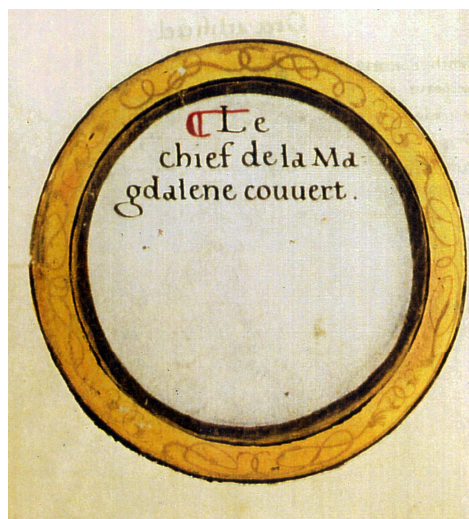 ¶ Le
chief de la Ma
gdalene couuert.